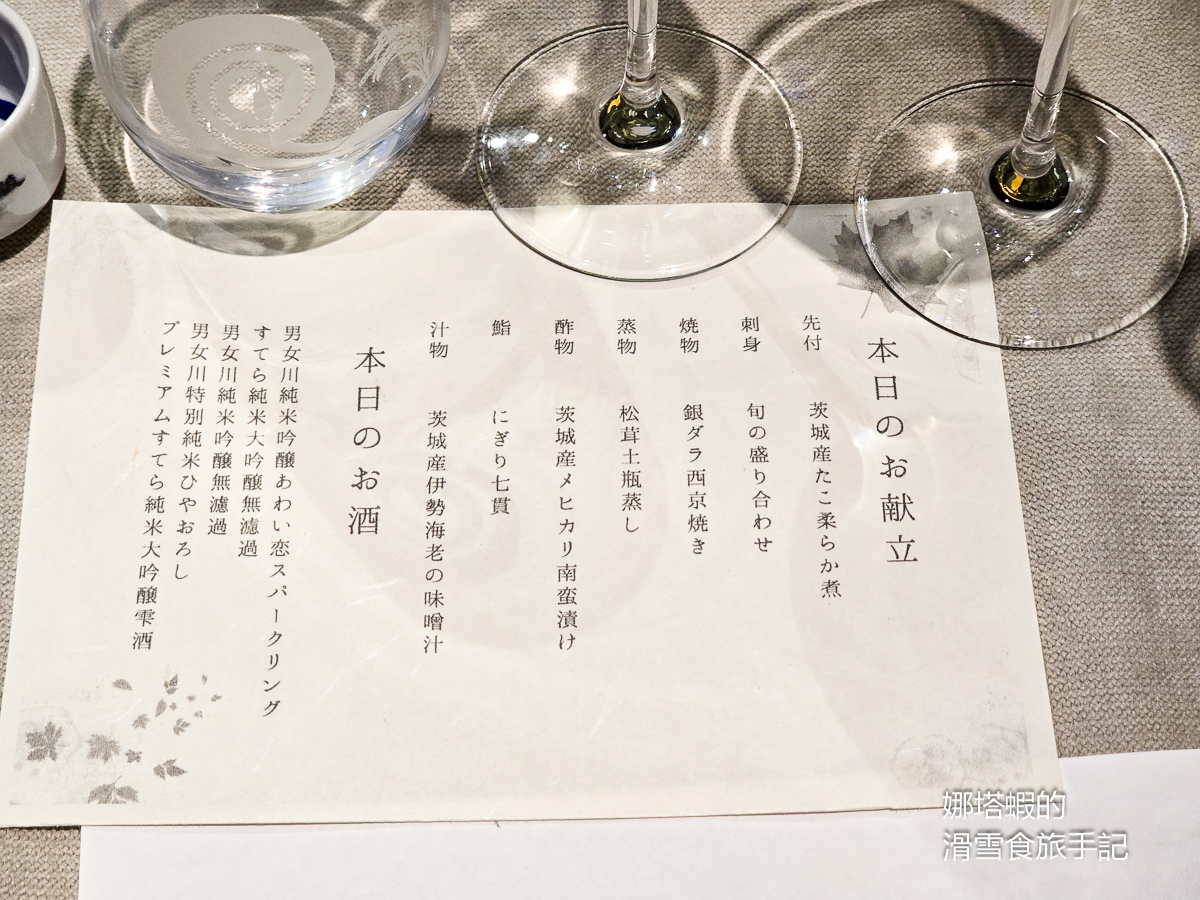 本日のお献立
先付 茨城産たこ柔らか煮
刺身 旬の盛り合わせ
焼物 銀ダラ西京焼き
蒸物 松茸土瓶蒸し
酢物 茨城産メヒカリ南蛮漬け
鮨 にぎり七貫
汁物 茨城産伊勢海老の味噌汁
本日のお酒
男女川純米吟醸あわい恋スパークリング
すてら純米大吟醸無濾過
男女川純米吟醸無濾過
男女川特別純米ひやおろし
プレミアムすてら純米大吟醸雫酒
娜塔蝦的
滑雪食旅手記